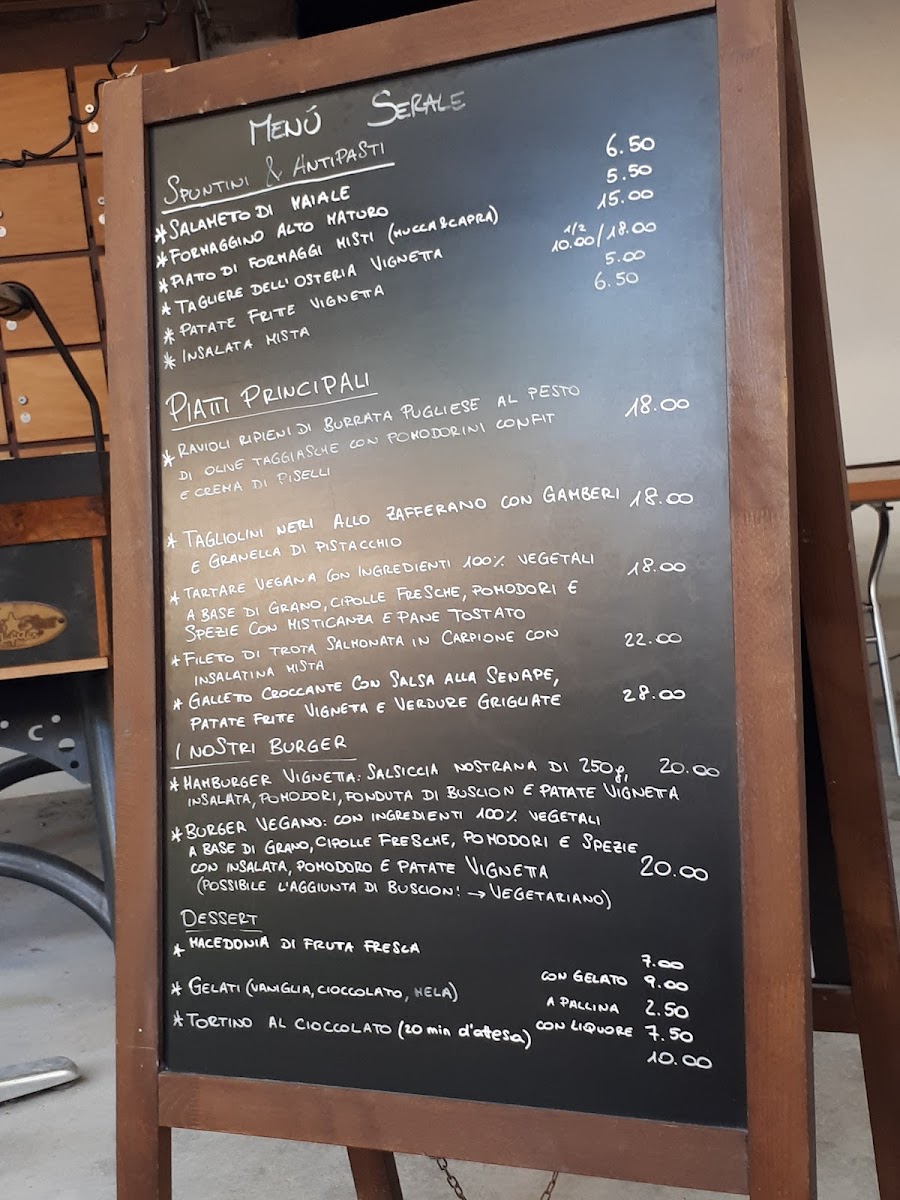 MENÚ SERALE
SPUNTINI & ANTIPASTI
*SALAMETO DI MAIALE 6.50
*FORMAGGINO ALTO MATURO 5.50
*PIATTO DI FORMAGGI MISTI (MUCCA&CAPRA) 15.00
*TAGLIERE DELL'OSTERIA VIGNETTA 1/2 10.00/18.00
*PATATE FRITE VIGNETTA 5.00
*INSALATA MISTA 6.50
PIATTI PRINCIPALI
*RAVIOLI RIPIENI DI BURRATA PUGLIESE AL PESTO 18.00
DI OLIVE TAGGIASCHE CON POMODORINI CONFIT
E CREMA DI PISELLI
*TAGLIOLINI NERI ALLO ZAFFERANO CON GAMBERI 18.00
E GRANELLA DI PISTACCHIO
*TARTARE VEGANA CON INGREDIENTI 100% VEGETALI 18.00
A BASE DI GRANO, CIPOLLE FRESCHE, POMODORI E
SPEZIE CON MISTICANZA E PANE TOSTATO
*FILETO DI TROTA SALMONATA IN CARPIONE CON 22.00
INSALATINA MISTA
*GALLETTO CROCCANTE CON SALSA ALLA SENAPE, 28.00
PATATE FRITE VIGNETA E VERDURE GRIGLIATE
I NOSTRI BURGER
*HAMBURGER VIGNETTA: SALSICCIA NOSTRANA DI 250g, 20.00
INSALATA, POMODORI, FONDUTA DI BUSCION E PATATE VIGNETTA
*BURGER VEGANO: CON INGREDIENTI 100% VEGETALI
A BASE DI GRANO, CIPOLLE FRESCHE, POMODORI E SPEZIE
CON INSALATA, POMODORO E PATATE VIGNETTA 20.00
(POSSIBILE L'AGGIUNTA DI BUSCION! → VEGETARIANO)
DESSERT
*MACEDONIA DI FRUTA FRESCA 7.00
CON GELATO 9.00
*GELATI (VANIGLIA, CIOCCOLATO, MELA) A PALLINA 2.50
CON LIQUORE 7.50
*TORTINO AL CIOCCOLATO (20 min d'attesa) 10.00